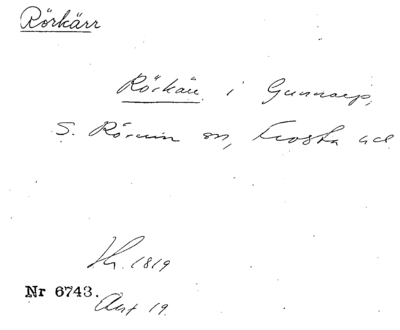 Rörkärr
Rörkärr i Gunnarp,
S. Rörum sn, Frosta hd
Hr. 1819
Nr 6743.
Akt 19.